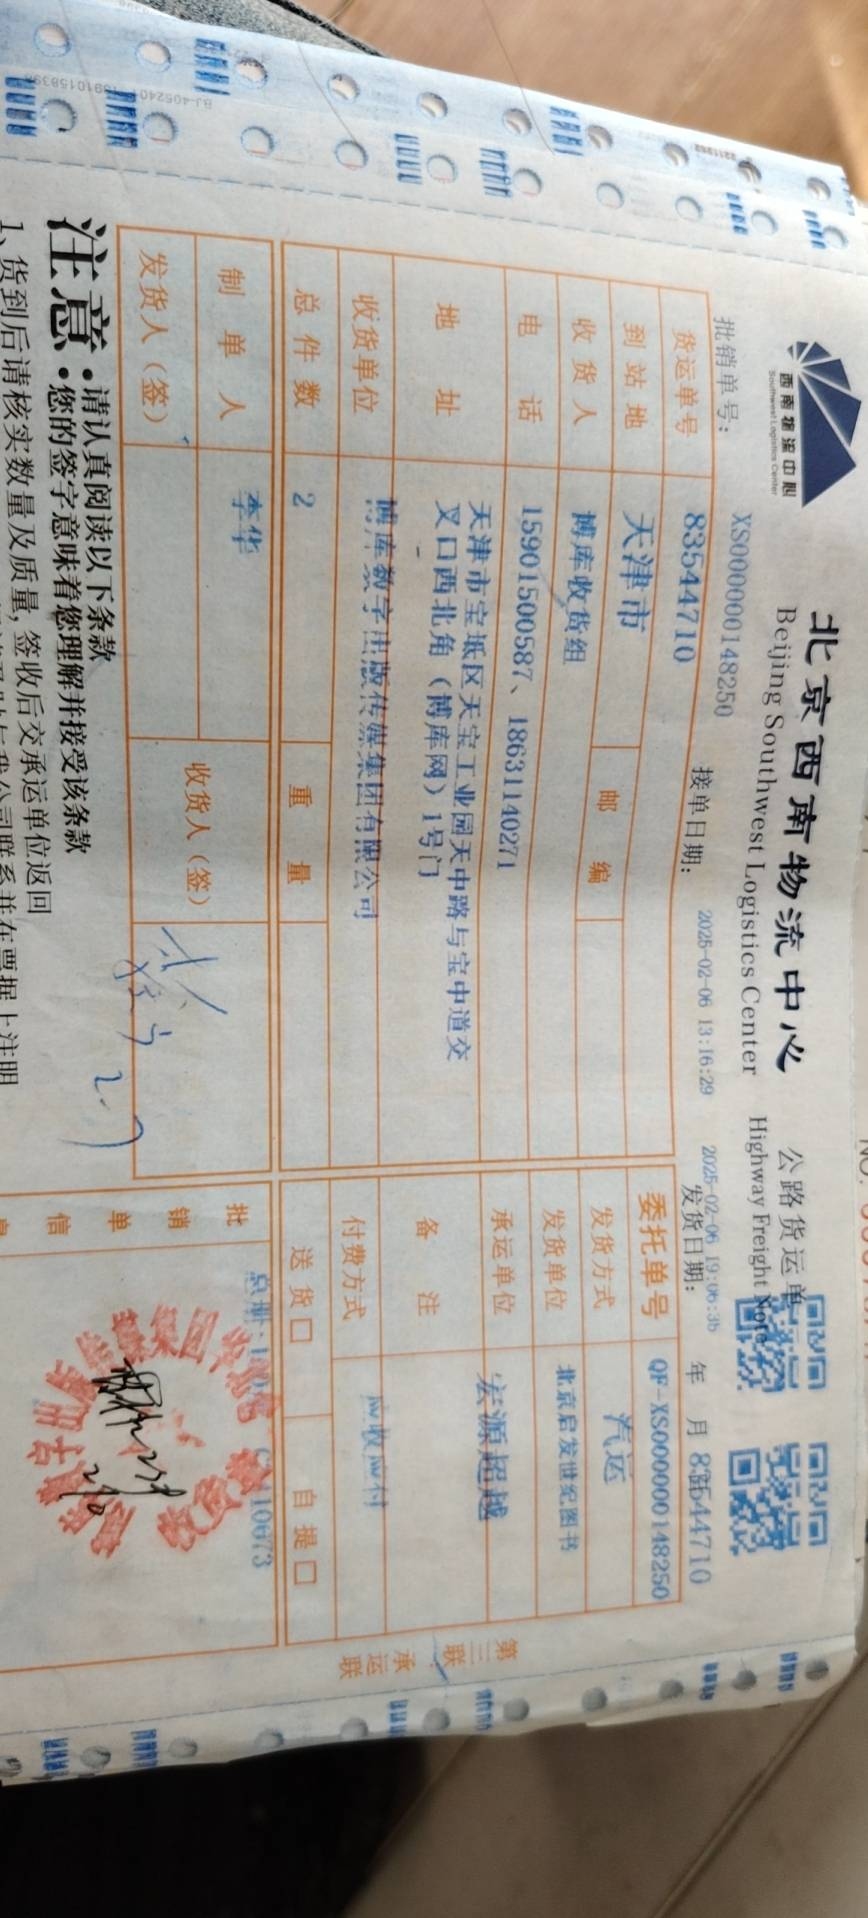 西南物流中心
Southwest Logistics Center
北京西南物流中心
Beijing Southwest Logistics Center
公路货运单
Highway Freight Note
批销单号: XS000000148250
接单日期: 2025-02-06 13:16:29
2025-02-06 19:06:35
发货日期: 年 月
83544710
货运单号 83544710
委托单号 QF-XS000000148250
到站地 天津市 邮编
发货方式 汽运
收货人 博库收货组
发货单位 北京启发世纪图书
电话 15901500587、18631140271
承运单位 宏源超越
地址 天津市宝坻区天宝工业园天中路与宝中道交
叉口西北角(博库网)1号门
备注
收货单位 博库数字出版传媒集团有限公司
付费方式 应收应付
总件数 2 重量
送货口 自提口
制单人 李华
发货人(签)
收货人(签)
批销单信息
第三联 承运联
注意:
请认真阅读以下条款
您的签字意味着您理解并接受该条款
1、货到后请核实数量及质量,签收后交承运单位返回